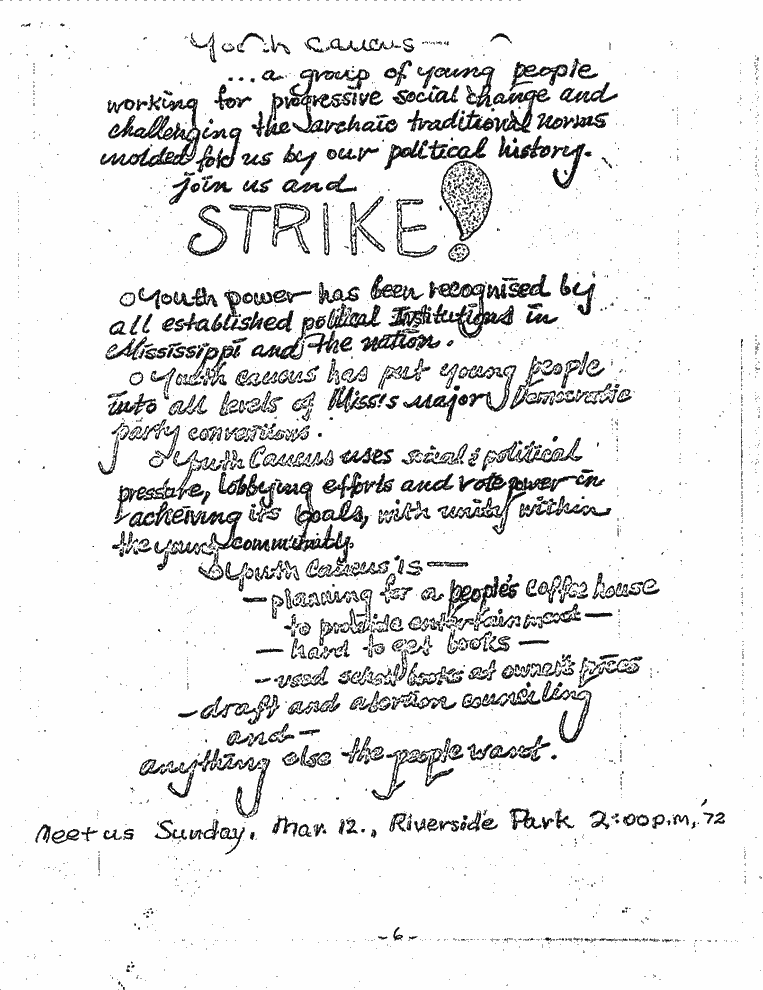 Youth Caucus —
...a group of young people
working for progressive social change and
challenging the archaic traditional norms
molded for us by our political history.
join us and
STRIKE!
o Youth power has been recognised by
all established political Institutions in
Mississippi and the nation.
o Youth caucus has put young people
into all levels of Miss's major Democratic
party conventions.
o Youth Caucus uses social & political
pressure, lobbying efforts and vote power in
acheiving its goals, with unity within
the young community.
o Youth Caucus is —
— planning for a people's coffee house
to provide entertainment —
— hard to get books —
- used school books at owner's prices
- draft and abortion counciling
and —
anything else the people want.
Meet us Sunday, Mar. 12., Riverside Park 2:00p.m, '72
- 6 -